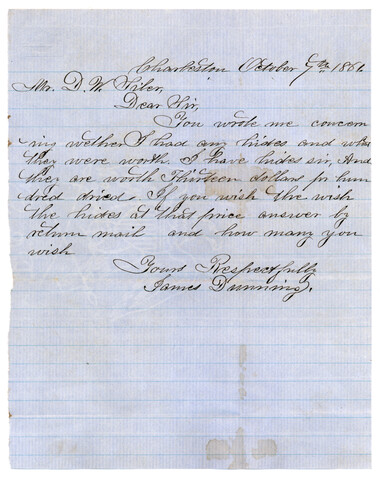 Charleston October 7th 1861.
Mr. D. W. Tiler,
Dear Sir,
You wrote me concern
ing wether I had any hides and what
they were worth. I have hides sir, And
they are worth Thirteen dollars pr hun
dred dried. If you wish the wish
the hides at that price answer by
return mail and how many you
wish
Yours Respectfully
James Dunning.